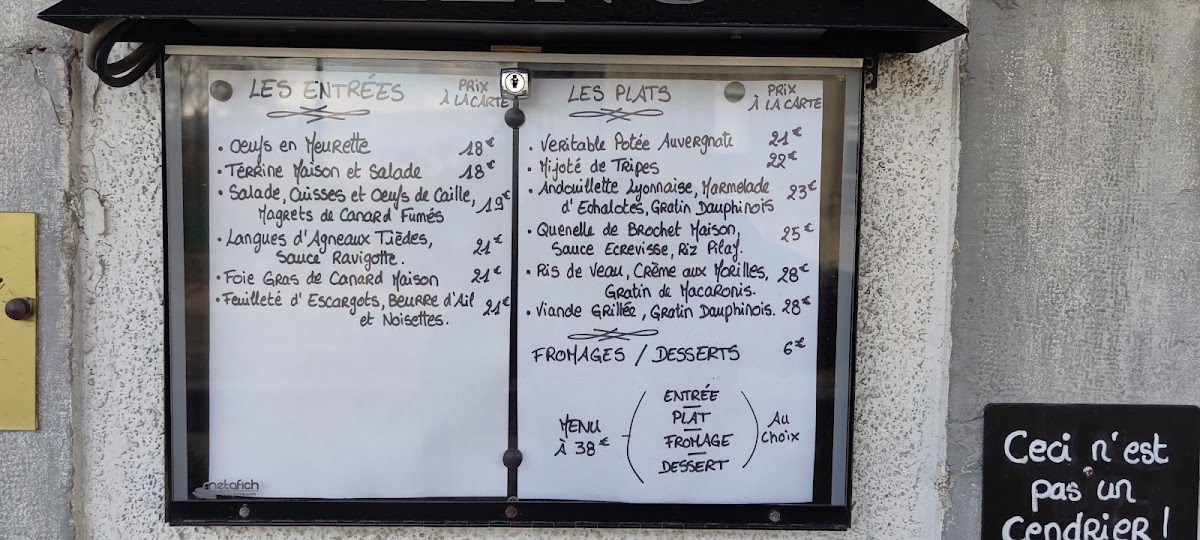 LES ENTRÉES
PRIX
À LA CARTE
• Oeufs en Meurette 18€
• Terrine Maison et Salade 18€
• Salade, Cuisses et Oeufs de Caille,
Magrets de Canard Fumés 19€
• Langues d'Agneaux Tièdes,
Sauce Ravigotte. 21€
• Foie Gras de Canard Maison 21€
• Feuilleté d'Escargots, Beurre d'Ail
et Noisettes. 21€
metafich
LES PLATS
PRIX
À LA CARTE
• Veritable Potée Auvergnate 21€
• Mijoté de Tripes 22€
• Andouillette Lyonnaise, Marmelade
d'Echalotes, Gratin Dauphinois 23€
• Quenelle de Brochet Maison,
Sauce Ecrevisse, Riz Pilaf. 25€
• Ris de Veau, Crème aux Morilles,
Gratin de Macaronis. 28€
• Viande Grillée, Gratin Dauphinois. 28€
FROMAGES / DESSERTS 6€
MENU
À 38€
ENTRÉE
PLAT
FROMAGE
DESSERT
Au
Choix
Ceci n'est
pas un
Cendrier !